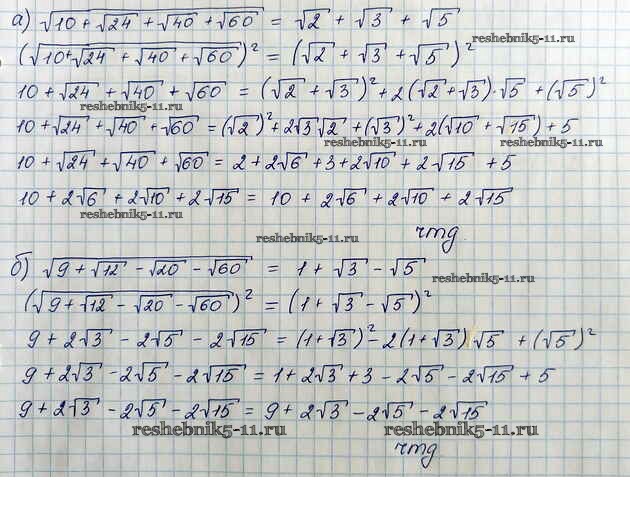 а) √(10+√24 + √40 + √60) = √2 + √3 + √5
reshebnik5-11.ru
(√(10+√24 + √40 + √60))² = (√2 + √3 + √5)²
10 + √24 + √40 + √60 = (√2 + √3)² + 2(√2 + √3)·√5 + (√5)²
reshebnik5-11.ru
10 + √24 + √40 + √60 = (√2)² + 2√3√2 + (√3)² + 2(√10 + √15) + 5
reshebnik5-11.ru reshebnik5-11.ru
10 + √24 + √40 + √60 = 2 + 2√6 + 3 + 2√10 + 2√15 + 5
10 + 2√6 + 2√10 + 2√15 = 10 + 2√6 + 2√10 + 2√15
reshebnik5-11.ru
reshebnik5-11.ru
чтд.
б) √(9 + √12 − √20 − √60) = 1 + √3 − √5
reshebnik5-11.ru
(√(9 + √12 − √20 − √60))² = (1 + √3 − √5)²
9 + 2√3 − 2√5 − 2√15 = (1 + √3)² − 2(1 + √3)√5 + (√5)²
9 + 2√3 − 2√5 − 2√15 = 1 + 2√3 + 3 − 2√5 − 2√15 + 5
9 + 2√3 − 2√5 − 2√15 = 9 + 2√3 − 2√5 − 2√15
reshebnik5-11.ru reshebnik5-11.ru
чтд.